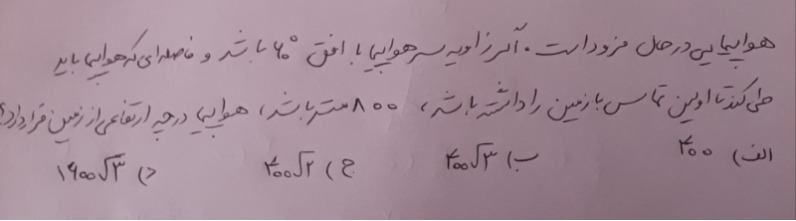 هواپیمایی در حال فرود است. اگر زاویه سر هواپیما با افق ۶۰° باشد و فاصله‌ای که هواپیما باید
طی کند تا اولین تماس با زمین را داشته باشد، ۸۰۰ متر باشد، هواپیما در چه ارتفاعی از زمین قرار دارد؟
الف) ۴۰۰ ب) ۴۰۰√۳ ج) ۴۰۰√۲ د) ۱۶۰۰√۳